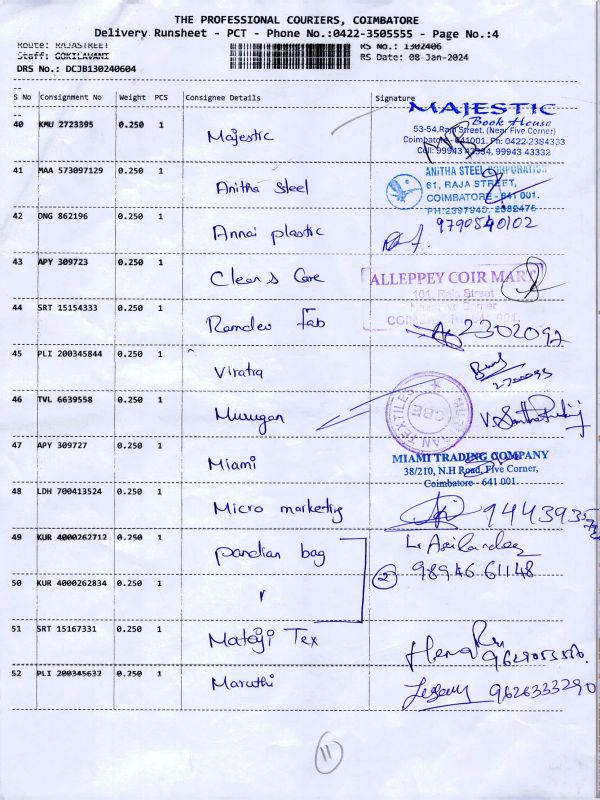 THE PROFESSIONAL COURIERS, COIMBATORE
Delivery Runsheet - PCT - Phone No.:0422-3505555 - Page No.:4
Route: RAJASTREET RS No.: 1302406
Staff: GOKILAVANI RS Date: 08-Jan-2024
DRS No.: DCJB130240604
S No Consignment No Weight PCS Consignee Details Signature
40 KMU 2723395 0.250 1 Majestic
MAJESTIC
Book House
53-54, Raja Street, (Near Five Corner)
Coimbatore - 641001. Ph: 0422-2384333
Cell: 99943 43334, 99943 43332
41 MAA 573097129 0.250 1 Anitha steel
ANITHA STEEL CORPORATION
61, RAJA STREET,
COIMBATORE - 641 001.
PH:2397945, 2382476
42 DNG 862196 0.250 1 Annai plastic 9790540102
43 APY 309723 0.250 1 Clean & Care
ALLEPPEY COIR MART
101, Raja Street
Corner
001.
44 SRT 15154333 0.250 1 Ramdev fab 2302092
45 PLI 200345844 0.250 1 Viratra
46 TVL 6639558 0.250 1 Murugan
MURUGAN TEXTILES
CBE
47 APY 309727 0.250 1 Miami
MIAMI TRADING COMPANY
38/210, N.H Road, Five Corner,
Coimbatore - 641 001.
48 LDH 700413524 0.250 1 Micro marketing
49 KUR 4000262712 0.250 1 pandian bag
50 KUR 4000262834 0.250 1 " 2 98946 61148
51 SRT 15167331 0.250 1 Mataji Tex
52 PLI 200345632 0.250 1 Maruthi 9626333290
11